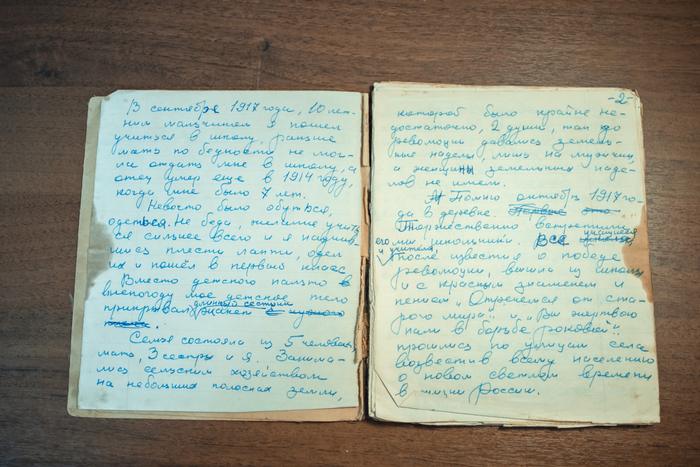 В сентябре 1917 года, 10 лет-
ним мальчиком я пошел
учиться в школу, раньше
мать по бедности не мог-
ла отдать мне в школу, а
отец умер еще в 1914 году,
когда мне было 7 лет.
Невочто было обуться,
одеться. Не беда, желание учить
ся сильнее всего и я научив-
шись плести лапти, одел
их и пошёл в первый класс.
Вместо детского пальто в
непогоду мое детское тело
длинной сестрин
прикрывал
Семья состояла из 5 человек
мать, 3 сестры и я. Занима-
лись сельским хозяйством
на небольших полосках земли,
-2-
которой было крайне не-
достаточно, 2 души, так до
революции давались земель-
ные наделы, лишь на мужчин,
а женщины земельных наде-
лов не имели.
Я Помню октябрь 1917 го-
да в деревне.
Торжественно встретили
его мы школьники все учащиеся
и учителя
После известия о победе
революции, вышли из школы
и с красным знаменем и
пением „Отречемся от ста-
рого мира" и „Вы жертвою
пали в борьбе роковой".
прошлись по улицам села
возвестив всему населению
о новом светлом времени
в жизни России.